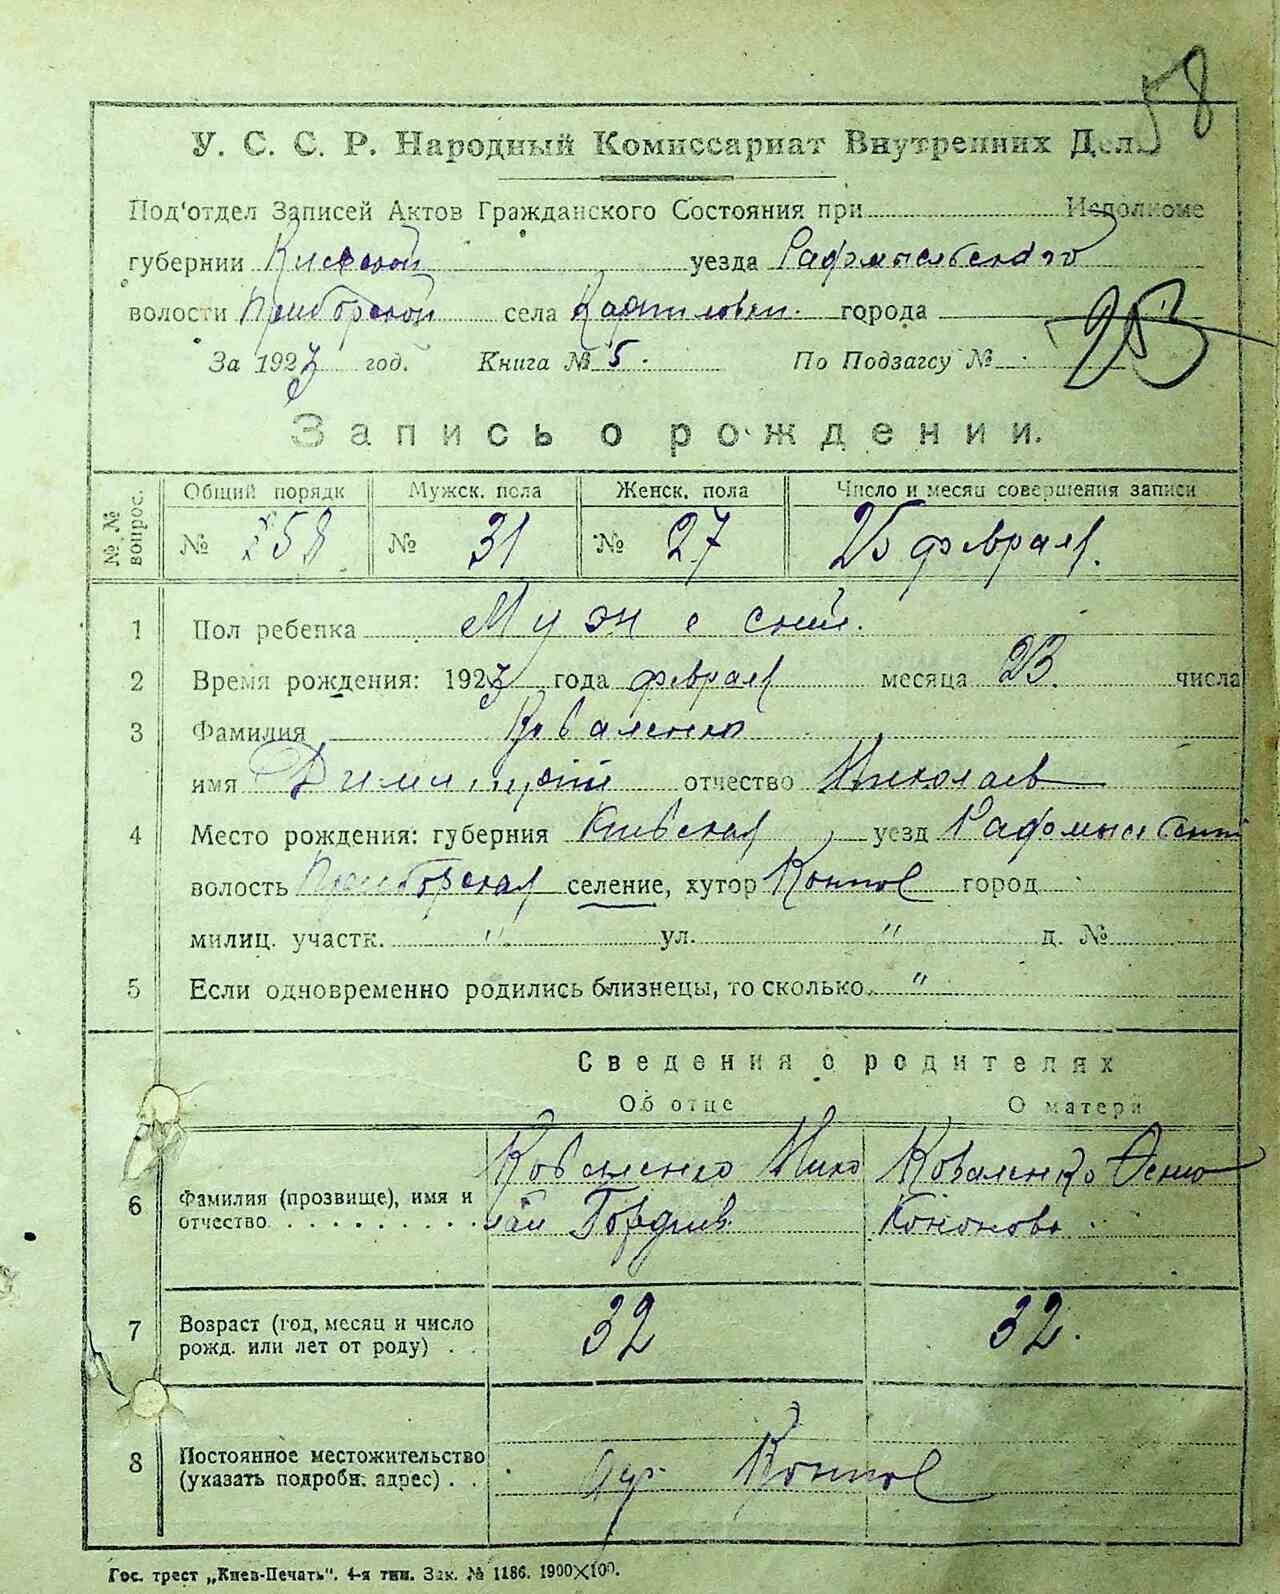 58
У. С. С. Р. Народный Комиссариат Внутренних Дел.
Под'отдел Записей Актов Гражданского Состояния при Исполкоме
губернии Киевской уезда Радомысльского
волости Приборской села Карпиловки города
За 1923 год. Книга № 5. По Подзагсу №
23
Запись о рождении.
№ № вопрос. Общий порядк Мужск. пола Женск. пола Число и месяц совершения записи
№ 58 № 31 № 27 25 февраля.
1 Пол ребенка Мужеский.
2 Время рождения: 1923 года февраля месяца 23. числа
3 Фамилия Коваленко
имя Димитрий отчество Николаев
4 Место рождения: губерния Киевская, уезд Радомысльский
волость Приборская селение, хутор город
милиц. участк. " ул. " д. №
5 Если одновременно родились близнецы, то сколько "
Сведения о родителях
Об отце О матери
Коваленко Нико Коваленко
6 Фамилия (прозвище), имя и
отчество лай Гордиев Кононова
7 Возраст (год, месяц и число 32 32.
рожд. или лет от роду)
8 Постоянное местожительство
(указать подробн. адрес) дер.
Гос. трест „Киев-Печать". 4-я тип. Зак. № 1186. 1900×100.